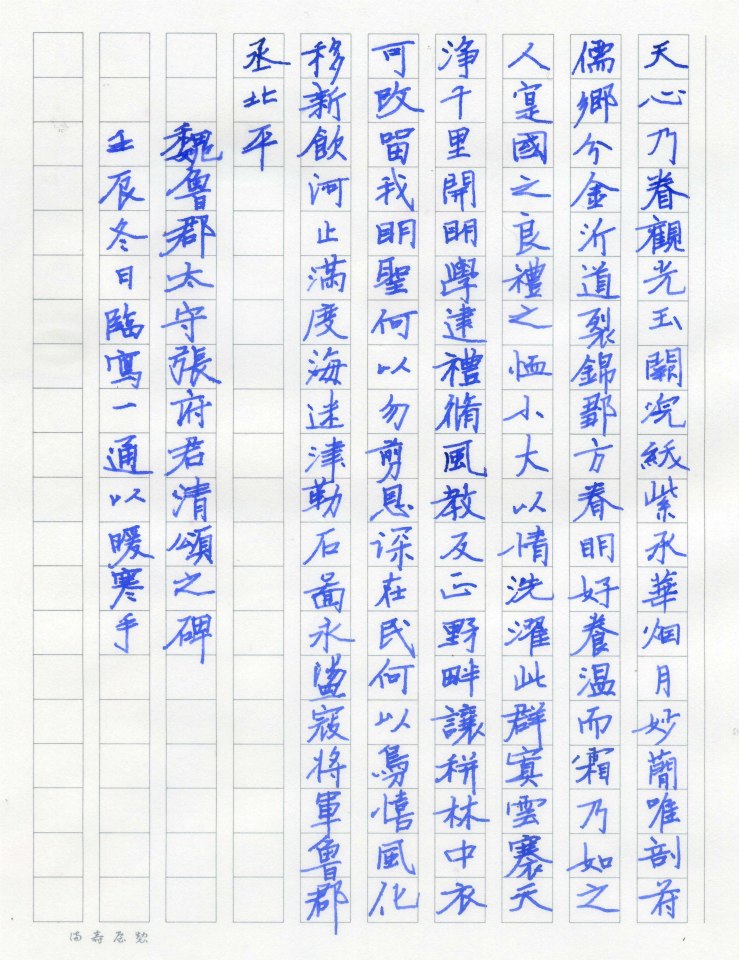 天心乃眷觀光玉闕浣紱紫承華烟月妙蕳唯剖苻
儒鄉分金沂道裂錦鄒方春明好養温而霜乃如之
人寔國之良禮之恤小大以情洗濯此群寞雲褰天
净千里開明學建禮脩風教反正野畔讓秏林中衣
可改留我明聖何以勿剪恩深在民何以爲憘風化
移新飲河止滿度海迷津勒石啚永盪寇将軍魯郡
丞北平
魏魯郡太守張府君清頌之碑
壬辰冬日臨寫一通以暖寒手